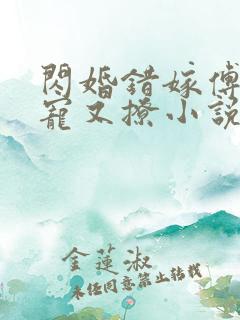 閃婚錯嫁傅
寵又撩小説
金蓮淑
未經同意禁止轉載